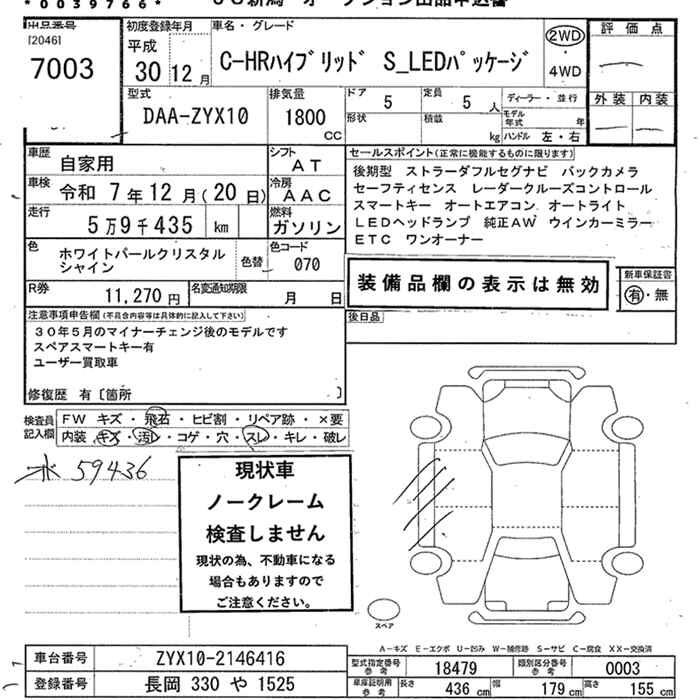 *0039766*
出品番号
[2046]
7003
初度登録年月
平成
30年12月
車名・グレード
C-HRハイブリッド S_LEDパッケージ
2WD
・
4WD
評価点
外装 内装
型式
DAA-ZYX10
排気量
1800
CC
ドア 5
定員 5 人
形状
積載 kg
ディーラー・並行
モデル年式 年
ハンドル 左・右
車歴 自家用
シフト AT
車検 令和 7年12月(20日)
冷房 AAC
走行 5万9千435 km
燃料 ガソリン
色 ホワイトパールクリスタル
シャイン
色替
色コード 070
R券 11,270円
名変通知期限 月 日
セールスポイント(正常に機能するものに限ります)
後期型 ストラーダフルセグナビ バックカメラ
セーフティセンス レーダークルーズコントロール
スマートキー オートエアコン オートライト
LEDヘッドランプ 純正AW ウインカーミラー
ETC ワンオーナー
装備品欄の表示は無効
新車保証書
有・無
後日品
注意事項申告欄(不具合内容等は具体的に記入して下さい)
30年5月のマイナーチェンジ後のモデルです
スペアスマートキー有
ユーザー買取車
修復歴 有〔箇所 〕
検査員
記入欄
FW キズ・飛石・ヒビ割・リペア跡・×要
内装・キズ・汚レ・コゲ・穴・スレ・キレ・破レ
59436
現状車
ノークレーム
検査しません
現状の為、不動車になる
場合もありますので
ご注意ください。
スペア
A-キズ E-エクボ U-凹み W-補修跡 S-サビ C-腐食 XX-交換済
車台番号 ZYX10-2146416
登録番号 長岡 330 や 1525
型式指定番号
参考
18479
類別区分番号
参考
0003
車庫証明用
参考
長さ 436 cm
幅 179 cm
高さ 155 cm